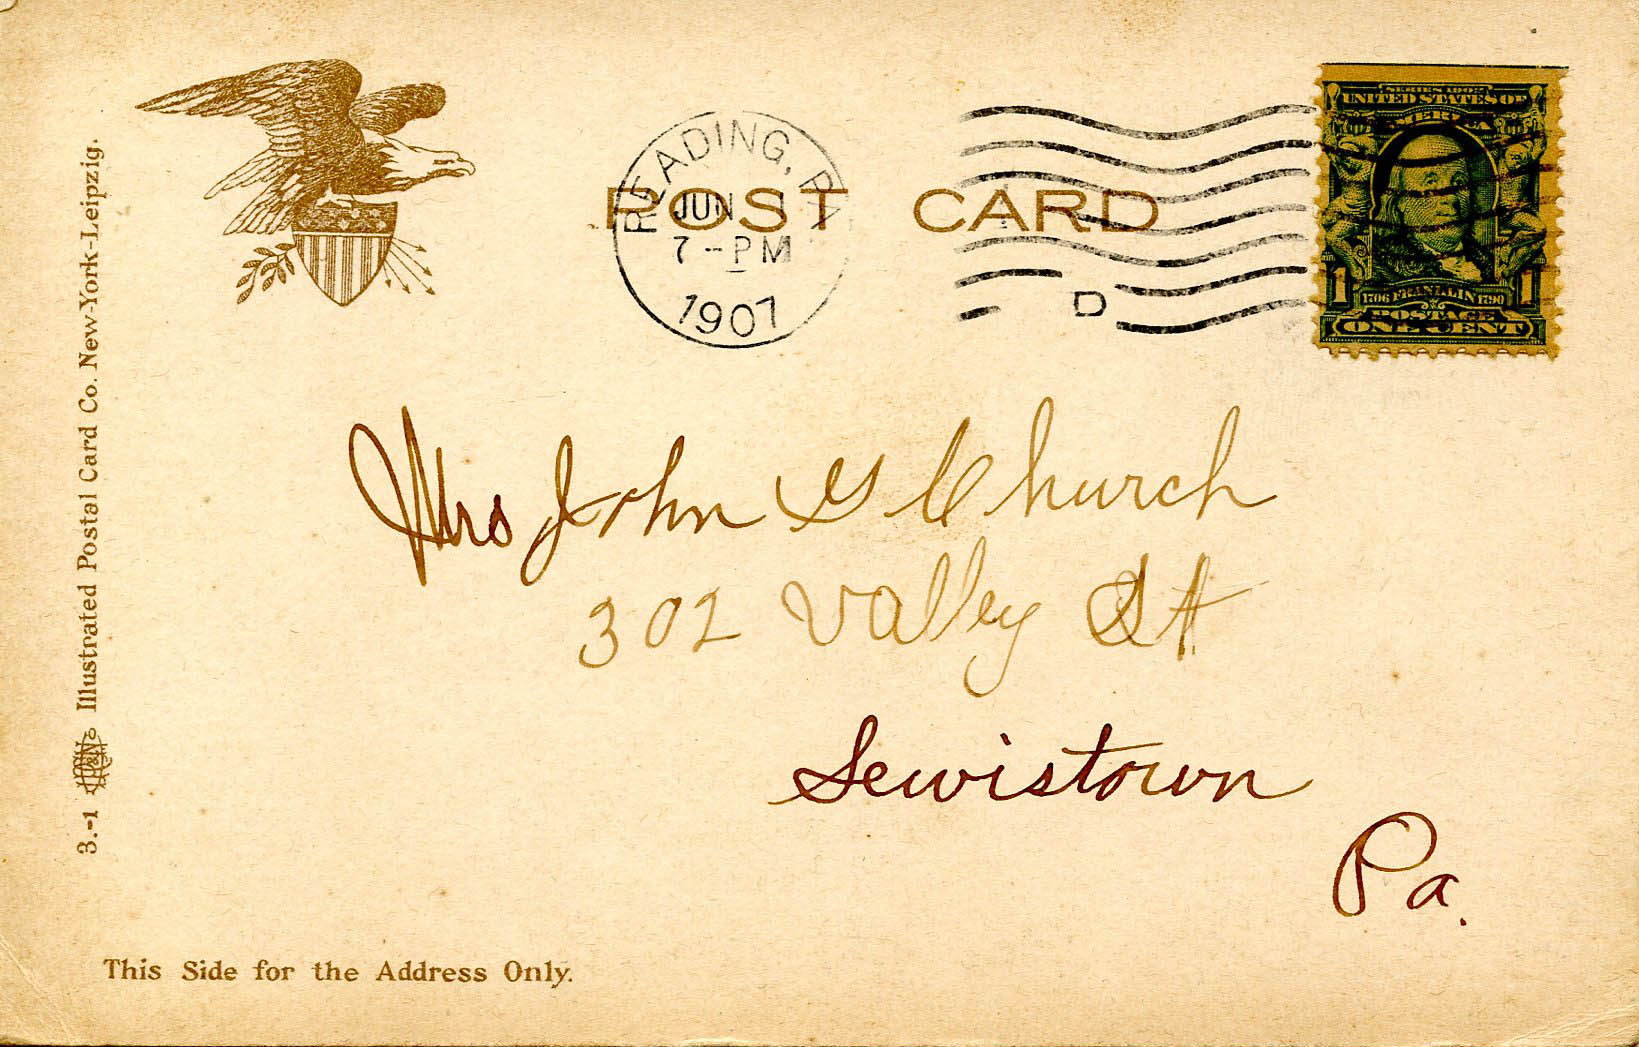 POST CARD
READING, PA
JUN 1
7-PM
1907
D
SERIES 1902
UNITED STATES OF
AMERICA
1 1706 FRANKLIN 1790 1
POSTAGE
ONE CENT
Mrs John G Church
302 Valley St
Lewistown
Pa.
3.-1 Illustrated Postal Card Co. New-York-Leipzig.
This Side for the Address Only.